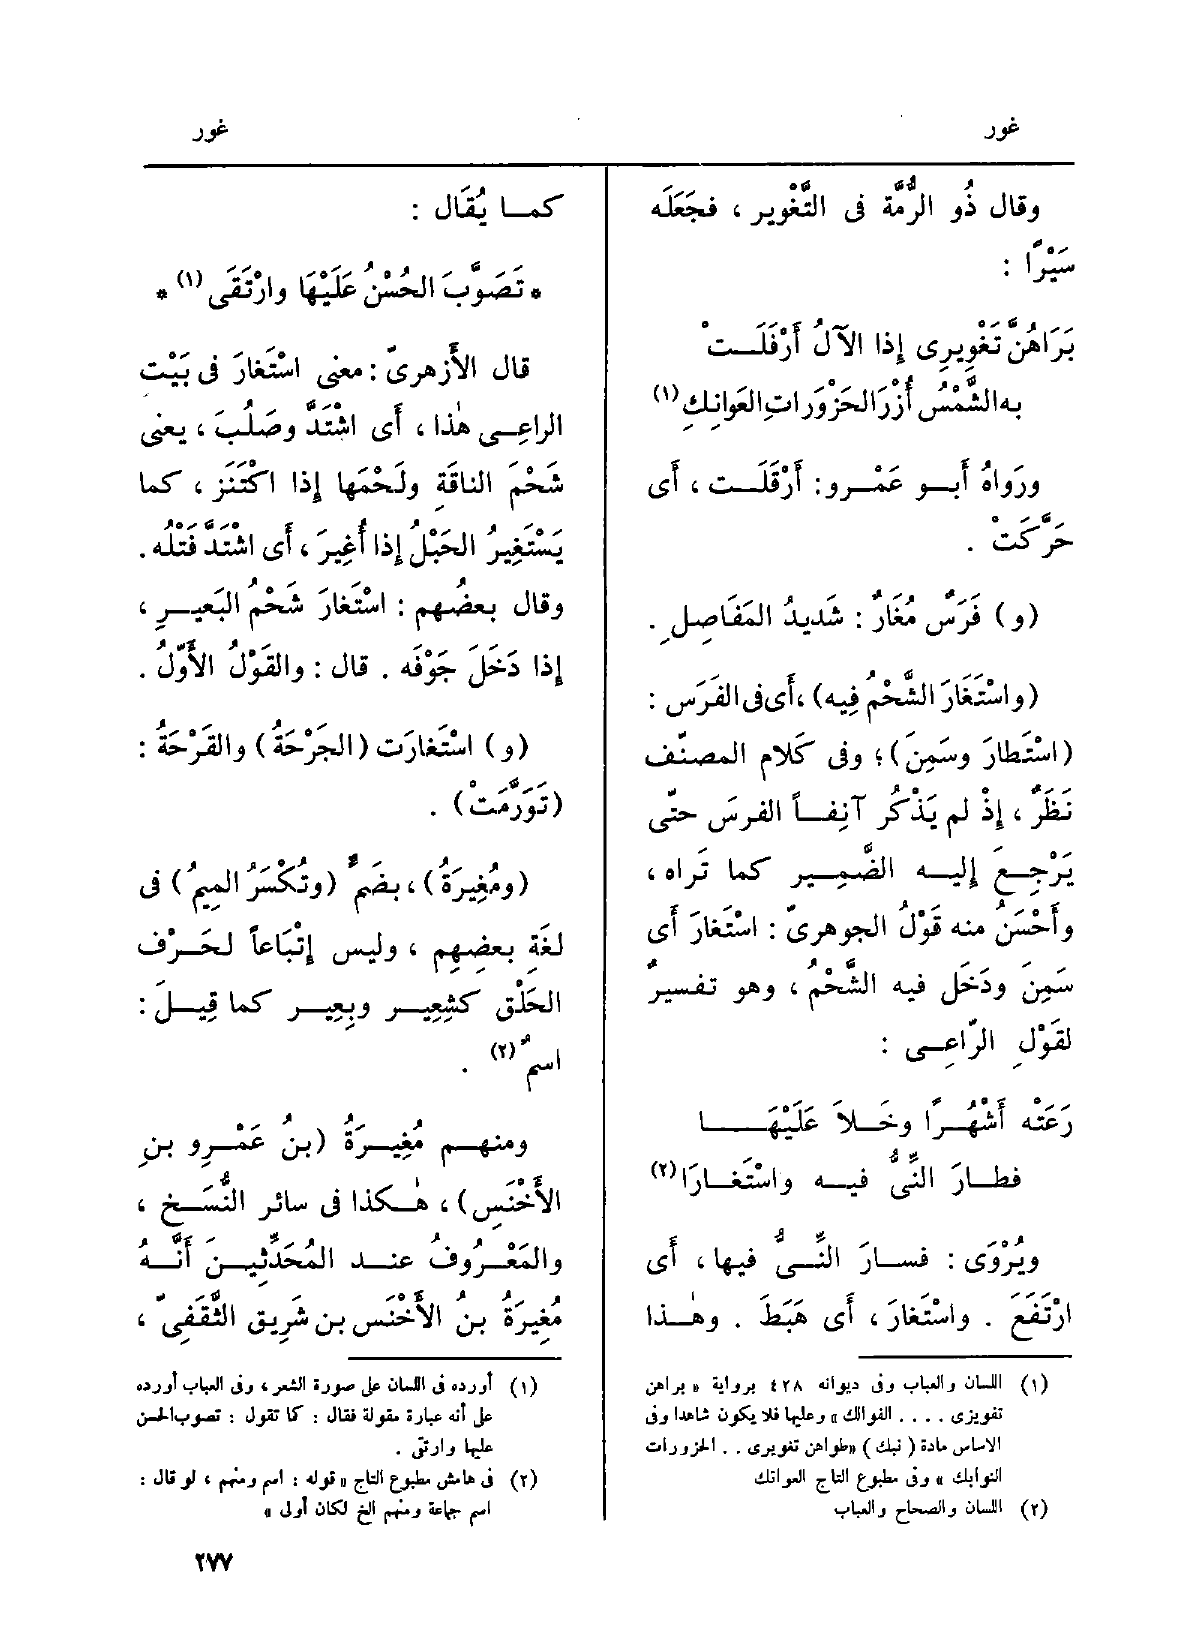 غور
غور
وقال ذُو الرُّمَّة فى التَّغْوِير ، فجَعَلَه
سَيْرًا :
بَرَاهُنَّ تَغْوِيرِى إذا الآلُ أَرْفَلَتْ
به الشَّمْسُ أُزْرَ الحَزْوَرَاتِ العَوانِكِ (١)
ورَوَاهُ أَبو عَمْرو : أَرْقَلَت ، أَى
حَرَّكَتْ .
(و) فَرَسٌ مُغَارٌ : شَدِيدُ المَفَاصِلِ .
(واسْتَغَارَ الشَّحْمُ فِيه) ، أَى فى الفَرَس :
(اسْتَطارَ وسَمِنَ) ؛ وفى كَلام المصنّف
نَظَرٌ ، إذْ لم يَذْكُر آنِفاً الفرسَ حتّى
يَرْجِعَ إليه الضَّمِير كما تَراه ،
وأَحْسَنُ منه قَوْلُ الجوهرىّ : اسْتَغارَ أَى
سَمِنَ ودَخَل فيه الشَّحْمُ ، وهو تفسيرٌ
لقَوْلِ الرّاعِى :
رَعَتْه أَشْهُرًا وخَلاَ عَلَيْهَا
فطارَ النِّىُّ فيه واسْتَغارَا (٢)
ويُرْوَى : فسارَ النِّىُّ فيها ، أَى
ارْتَفَعَ . واسْتَغارَ ، أَى هَبَطَ . وهٰذا
(١) اللسان والعباب وفى ديوانه ٤٢٨ برواية « براهن
تفويزى .... الفوالك » وعليها فلا يكون شاهدا وفى
الاساس مادة ( نبك ) « طواهن تغويرى .. الحزورات
النوابك » وفى مطبوع التاج العوانك
(٢) اللسان والصحاح والعباب
كما يُقَال :
* تَصَوَّبَ الحُسْنُ عَلَيْهَا وارْتَقَى (١) *
قال الأَزهرىّ : معنى اسْتَغارَ فى بَيْت
الراعِى هٰذا ، أَى اشْتَدَّ وصَلُبَ ، يعنى
شَحْمَ الناقَةِ ولَحْمَها إذا اكْتَنَز ، كما
يَسْتَغِيرُ الحَبْلُ إذا أُغِيرَ ، أَى اشْتَدَّ فَتْلُه .
وقال بعضُهم : اسْتَغارَ شَحْمُ البَعِيرِ ،
إذا دَخَلَ جَوْفَه . قال : والقَوْلُ الأَوّلُ .
(و) اسْتَغارَت (الجَرْحَةُ) والقَرْحَةُ :
(تَوَرَّمَتْ) .
(ومُغِيرَةُ) ، بضَمٍّ (وتُكْسَرُ المِيمُ) فى
لغَةِ بعضِهِم ، وليس إتْبَاعاً لحَرْف
الحَلْق كشِعِير وبِعِير كما قِيلَ :
اسمٌ (٢) .
ومنهم مُغِيرَةُ (بنُ عَمْرِو بنِ
الأَخْنَسِ) ، هٰكذا فى سائر النُّسَخ ،
والمَعْرُوفُ عند المُحَدِّثِينَ أَنَّهُ
مُغِيرَةُ بنُ الأَخْنَسِ بنِ شَرِيق الثَّقَفِىّ ،
(١) أورده فى اللسان على صورة الشعر ، وفى العباب أورده
على أنه عبارة مقولة فقال : كما تقول : تصوب الحسن
عليها وارتقى .
(٢) فى هامش مطبوع التاج « قوله : اسم ومنهم ، لو قال :
اسم جماعة ومنهم الخ لكان أولى »
٢٧٧